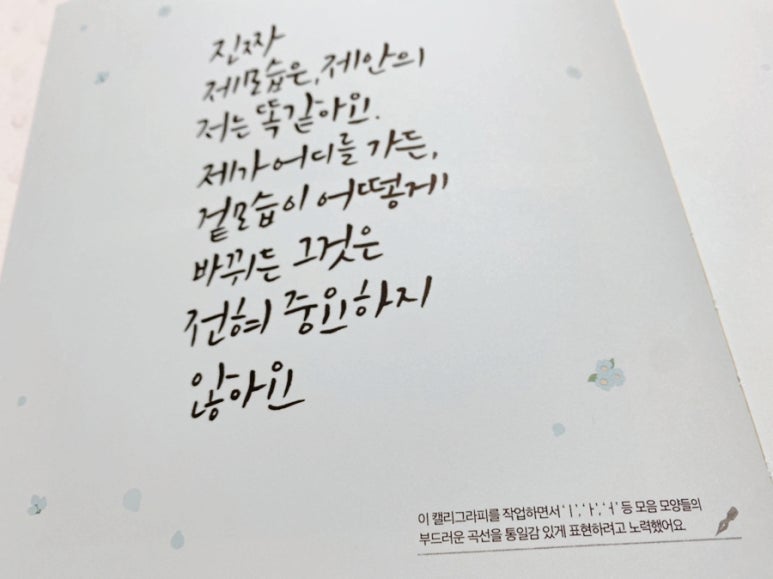 진짜
제모습은, 제안의
저는 똑같아요.
제가 어디를 가든,
겉모습이 어떻게
바뀌든 그것은
전혀 중요하지
않아요
이 캘리그라피를 작업하면서 'ㅣ', 'ㅏ', 'ㅓ' 등 모음 모양들의
부드러운 곡선을 통일감 있게 표현하려고 노력했어요.